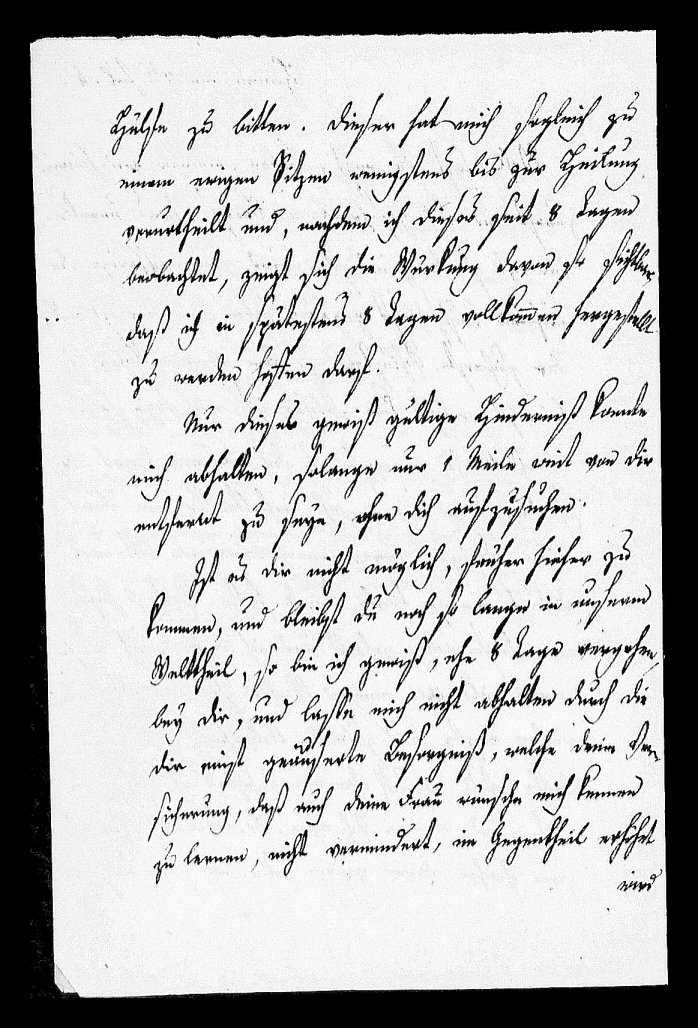 Hülfe zu bitten. Dieser hat mich sogleich zu
einem ewigen Sitzen wenigstens bis zur Heilung
verurtheilt und, nachdem ich dieses seit 8 Tagen
beobachtet, zeigt sich die Würkung davon so sichtbar,
daß ich in spätestens 8 Tagen vollkom̅en hergestellt
zu werden hoffen darf.
Nur dieses gewiß gültige Hinderniß konnte
mich abhalten, solange nur 1 Meile weit von dir
entfernt zu seyn, ohne dich aufzusuchen.
Ist es dir nicht möglich, früher hieher zu
kommen, und bleibst du noch so lange in unserm
Welttheil, so bin ich gewiß, ehe 8 Tage vergehen,
bey dir, und lasse mich nicht abhalten durch die
dir einst geäusserte Besorgniß, welche deine Ver-
sicherung, daß auch deine Frau wünsche mich kennen
zu lernen, nicht vermindert, im Gegentheil erhöht
wird